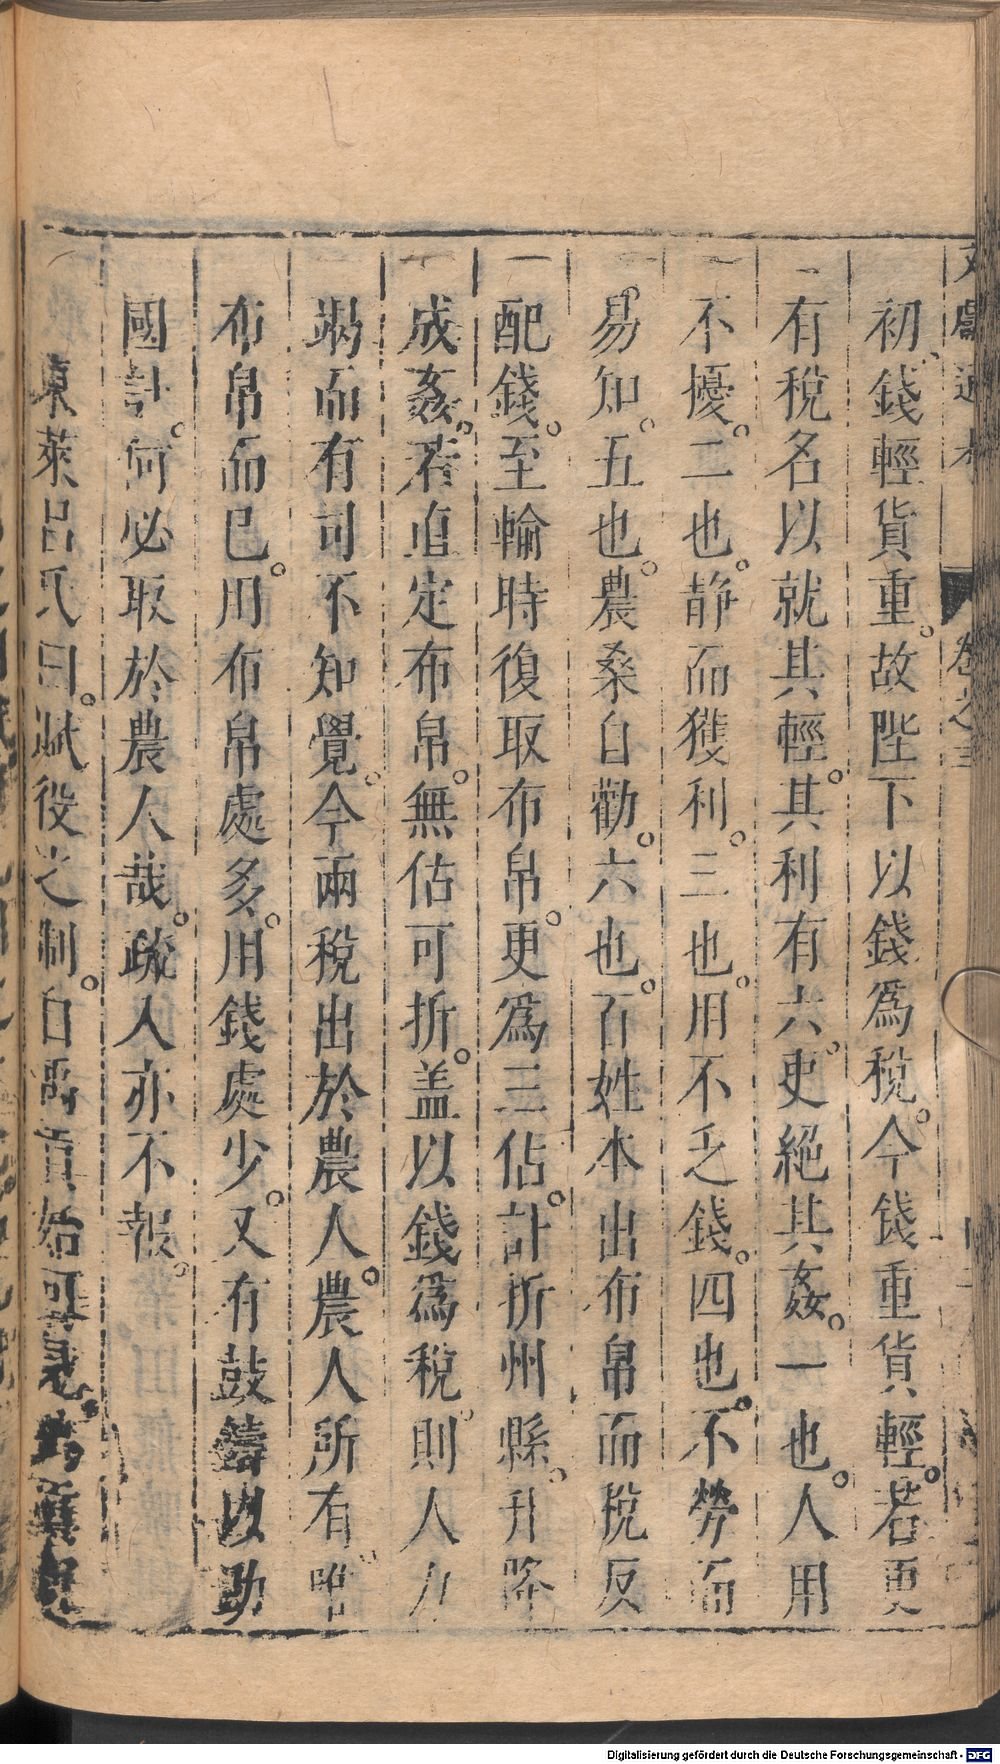 文獻通考 卷之三
初錢輕貨重。故陛下以錢爲稅。今錢重貨輕。若更
有稅名以就其輕。其利有六。吏絕其姦。一也。人用
不擾。二也。静而獲利。三也。用不乏錢。四也。不勞而
易知。五也。農桑自勸。六也。百姓本出布帛而稅反
配錢。至輸時復取布帛。更爲三估。計折州縣。升降
成姦。若直定布帛。無估可折。盖以錢爲稅。則人力
竭而有司不知覺。今兩稅出於農人。農人所有。唯
布帛而已。用布帛處多。用錢處少。又有鼓鑄以助
國計。何必取於農人哉。疏入亦不報。
東萊呂氏曰。賦役之制。自禹貢始可見。
Digitalisierung gefördert durch die Deutsche Forschungsgemeinschaft - DFG